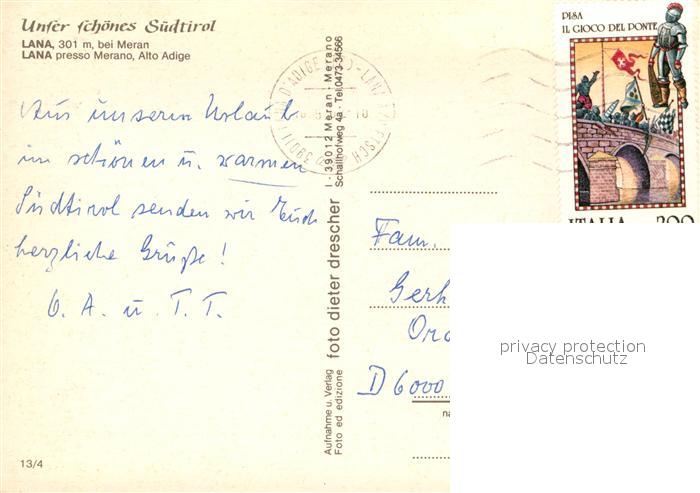 Unser schönes Südtirol
LANA, 301 m, bei Meran
LANA presso Merano, Alto Adige
Aus unserem Urlaub
im schönen u. warmen
Südtirol senden wir Euch
herzliche Grüße!
O. A. u. T. T.
13/4
Aufnahme u. Verlag
Foto ed edizione
foto dieter drescher
I - 39012 Meran - Merano
Schallhofweg 4a - Tel. 0473-34566
PISA
IL GIOCO DEL PONTE
ITALIA 300
Fam.
Gerh
D 6000
na
privacy protection
Datenschutz